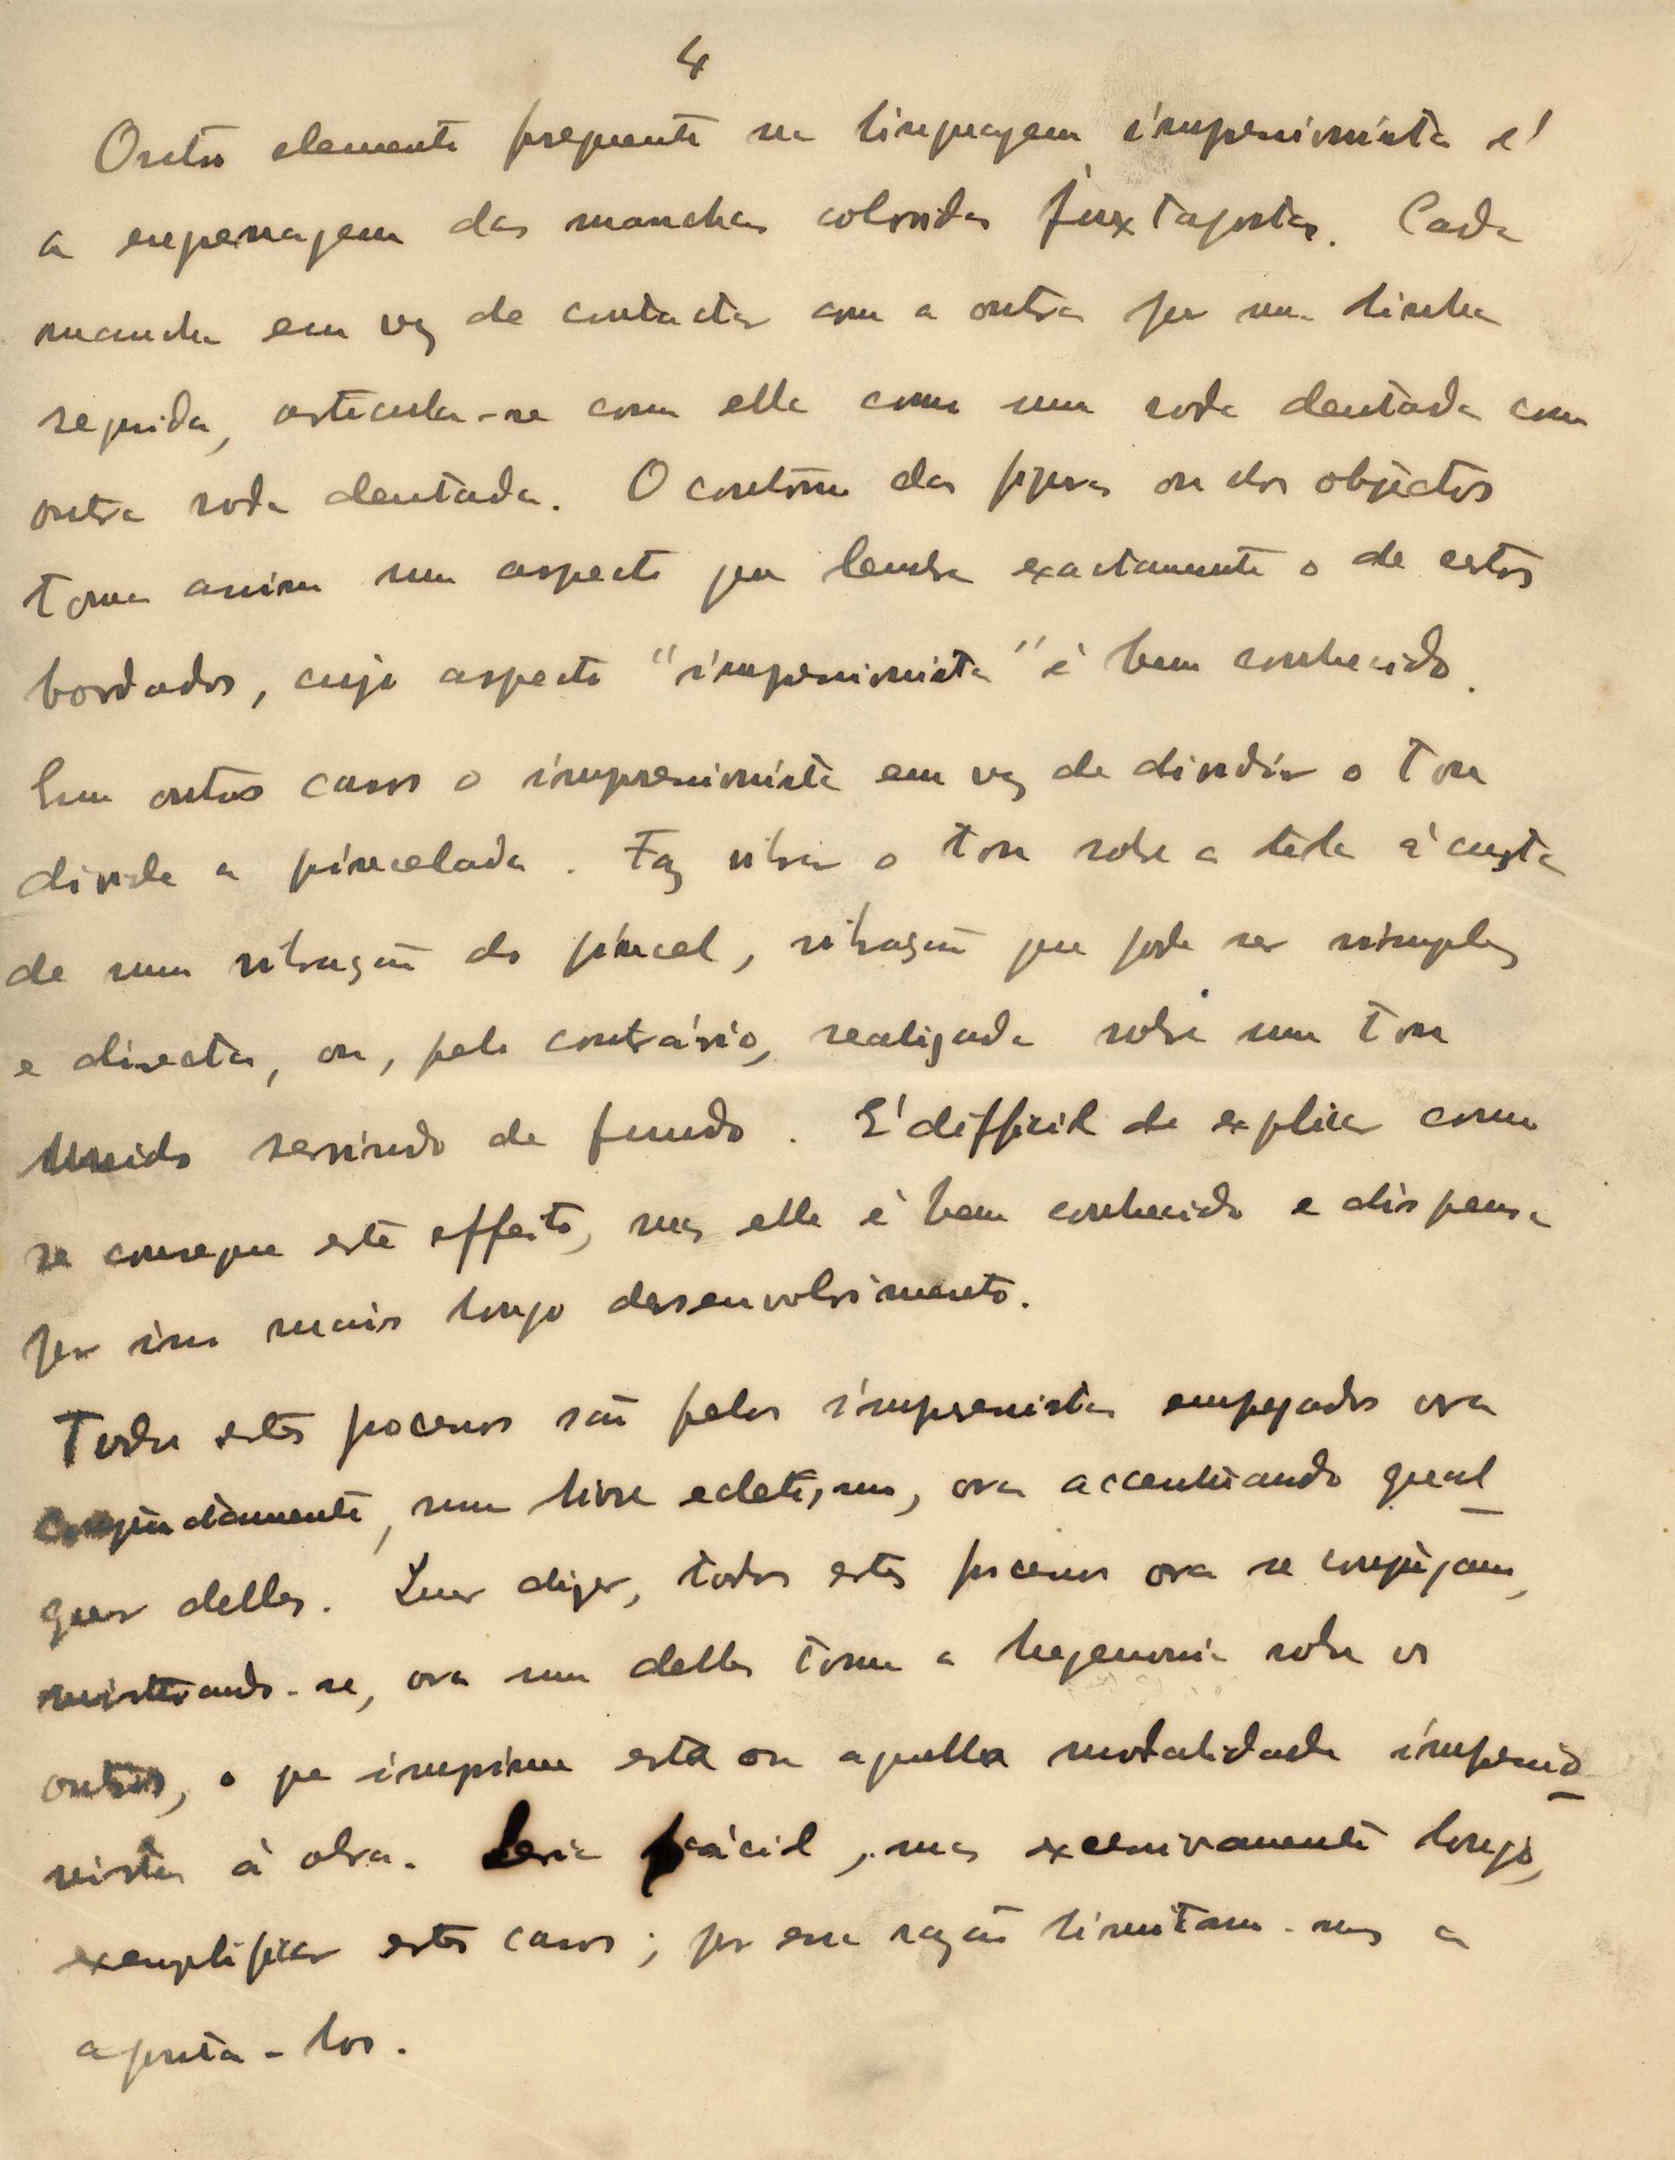 4
Outro elemento frequente na linguagem impressionista é
a engrenagem das manchas coloridas juxtapostas. Cada
mancha em vez de contactar com a outra por uma linha
seguida, articula-se com ella como uma roda dentada com
outra roda dentada. O contôrno das figuras ou dos objectos
toma assim um aspecto que lembra exactamente o de certos
bordados, cujo aspecto "impressionista" é bem conhecido.
Em outros casos o impressionista em vez de dividir o tom
divide a pincelada. Faz vibrar o tom sobre a tela á custa
de uma vibração do pincel, vibração que pode ser simples
e directa, ou, pelo contrário, realizada sobre um tom
unido servindo de fundo. E' difficil de explicar como
se consegue este effeito, mas elle é bem conhecido e dispensa
por isso mais longo desenvolvimento.
Todos estes processos são pelos impressionistas empregados ora
conjunctamente, num livre ecletismo, ora accentuando qual-
quer delles. Quer dizer, todos estes processos ora se conjugam,
misturando-se, ora um delles toma a hegemonia sobre os
outros, o que imprime esta ou aquella modalidade impressio-
nista á obra. Seria fácil, mas excessivamente longo,
exemplificar estes casos; por essa razão limitamo-nos a
aponta-los.